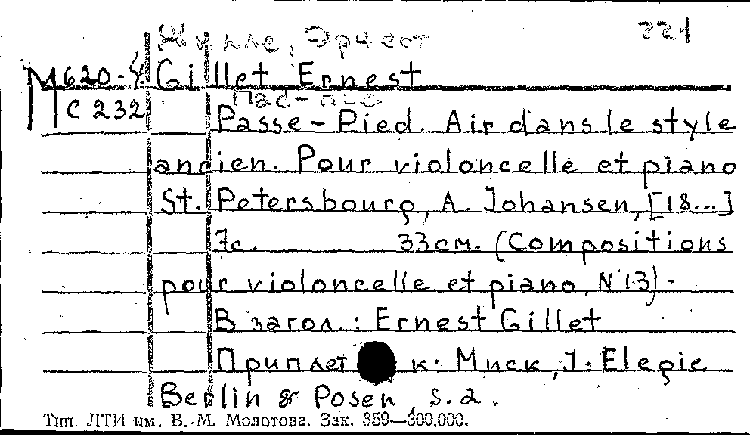 Жилле, Эрнест 221
М620-4 Gillet Ernest
Пас-пье
С 232 Passe-Pied. Air dans le style
ancien. Pour violoncelle et piano
St. Petersbourg, A. Johansen, [18...]
7c. 33см. (Compositions
pour violoncelle et piano, N 13).
В загол.: Ernest Gillet
Приплет к: Миск, J. Elegie
Berlin & Posen s.a.
Тип. ЛТИ им. В. М. Молотова. Зак. 859—300.000.